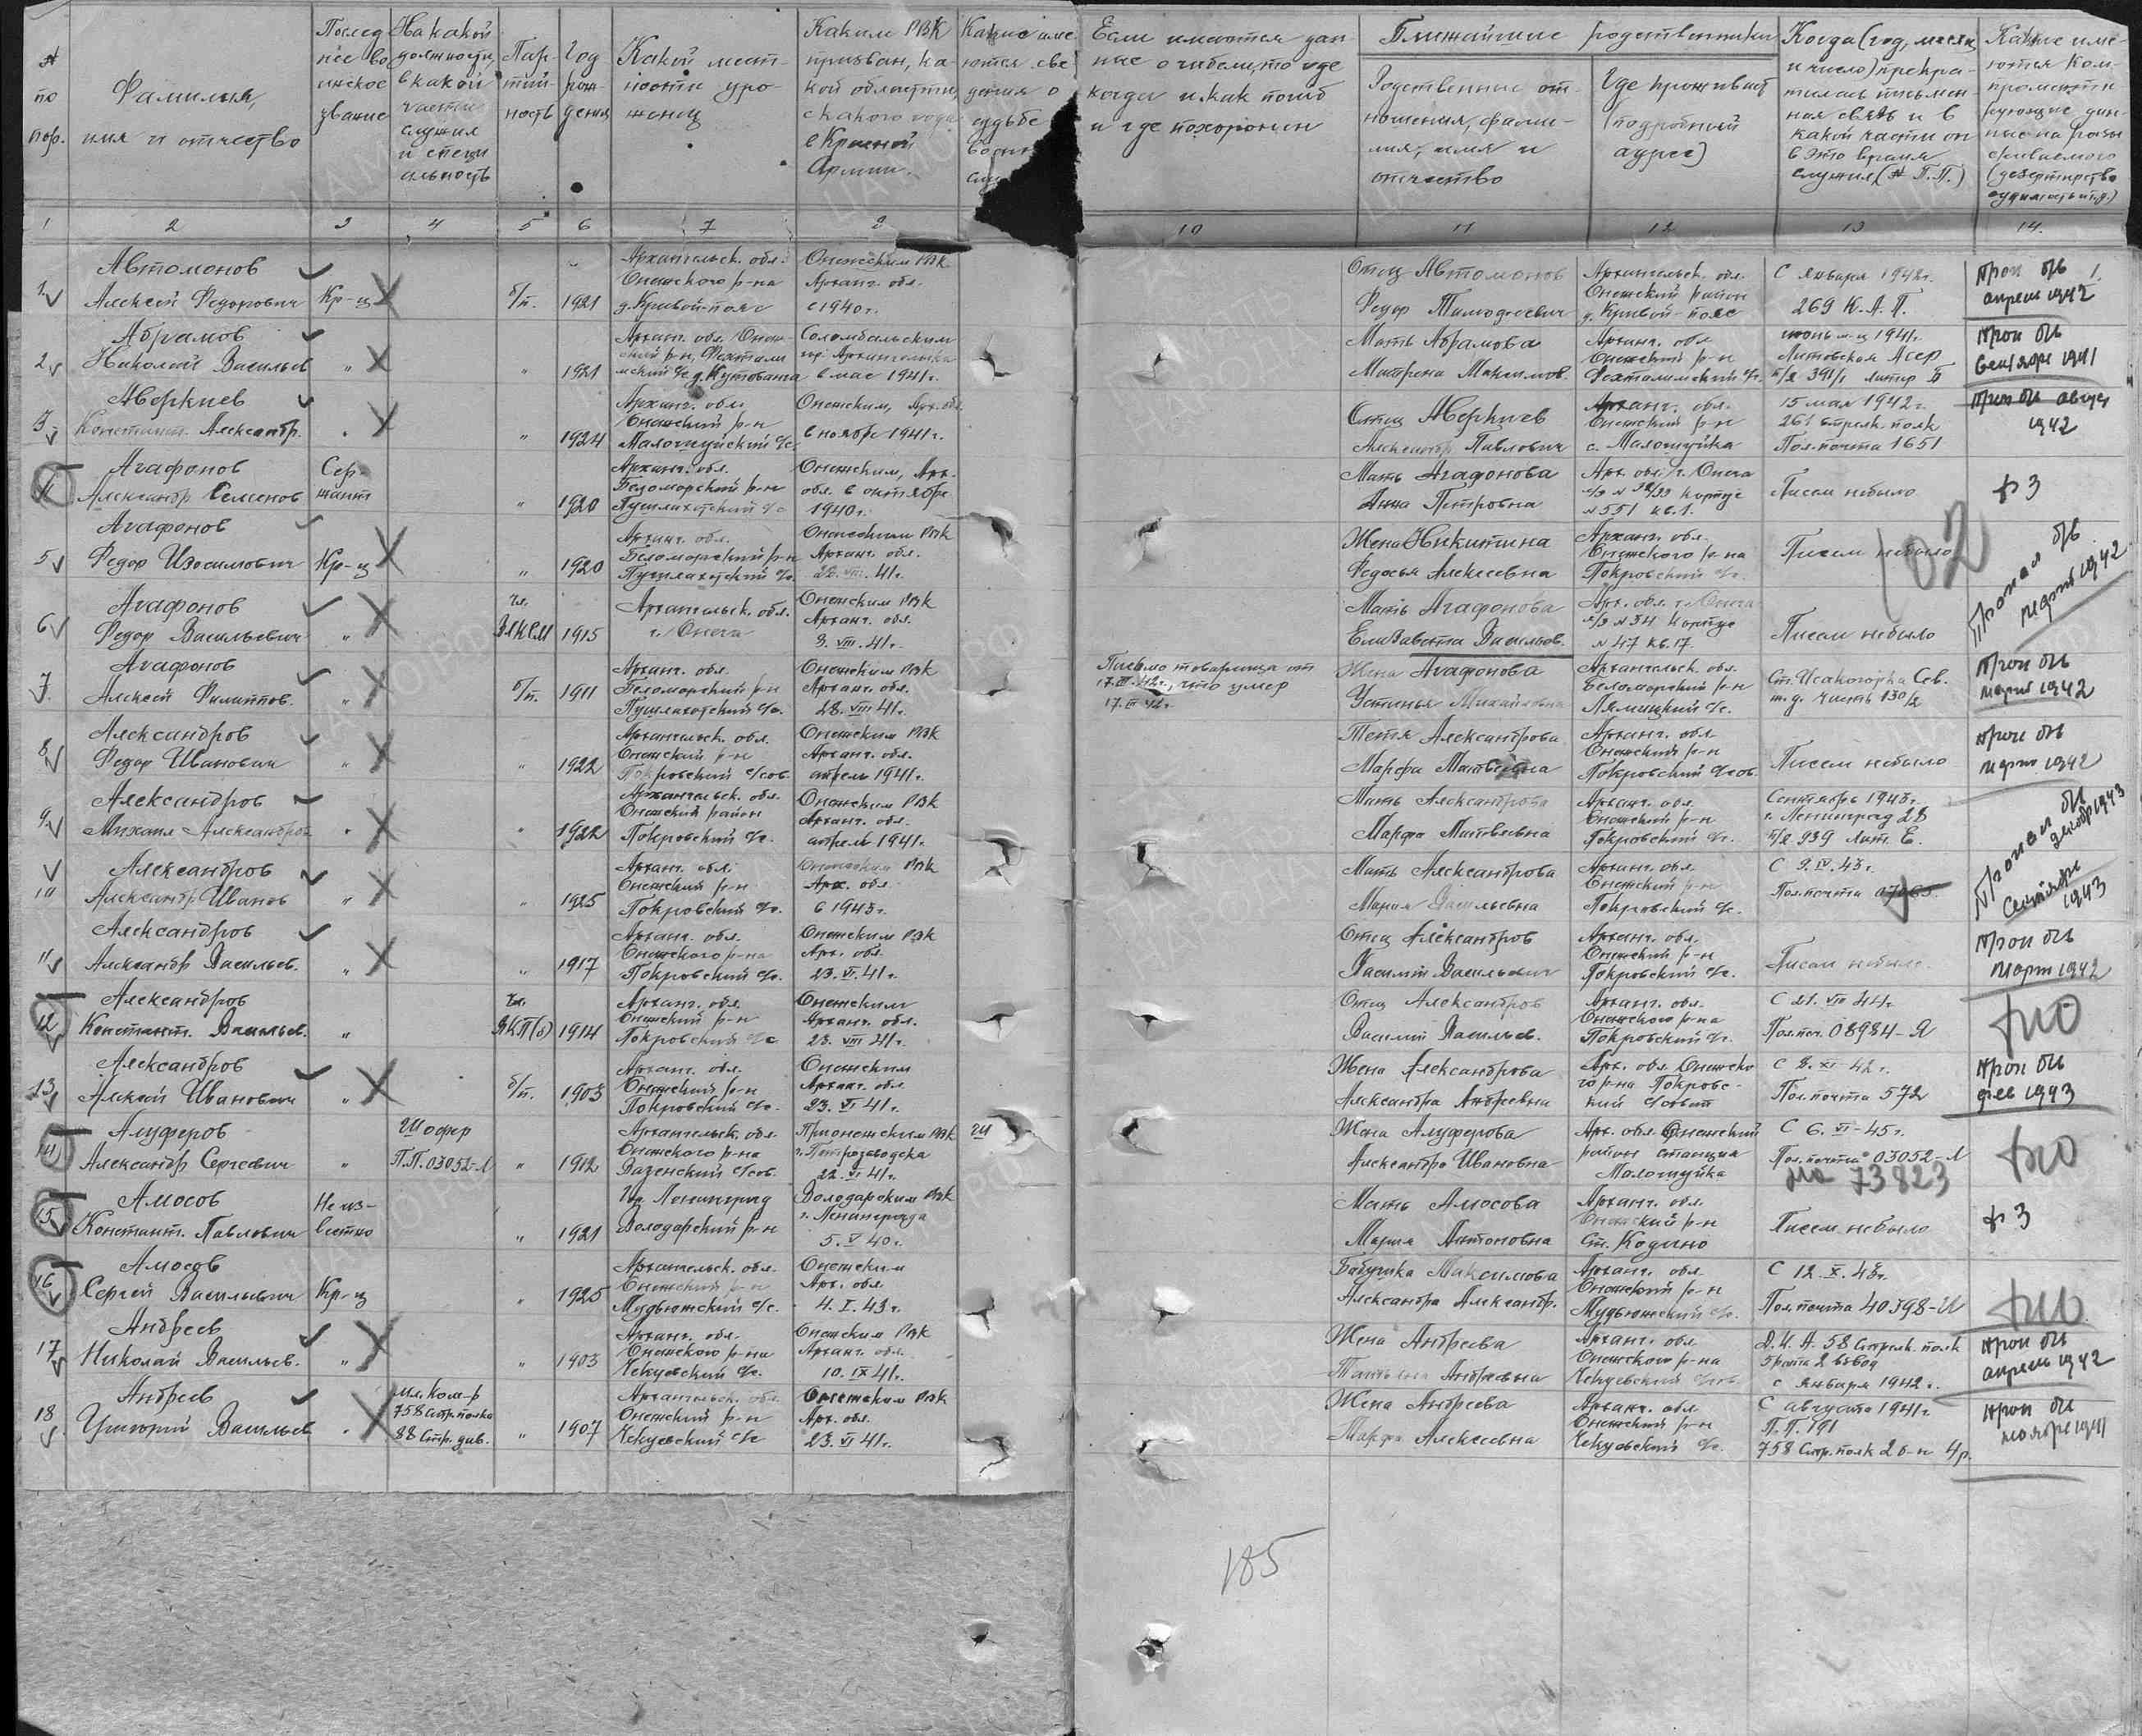 № по пор.
Фамилия, имя и отчество
Послед нее во инское звание
На какой должности, в какой части служил и специ альность
Пар тий ность
Год рож дения
Какой мест ности уро женец
Каким РВК призван, ка кой области, с какого года в Красной Армии.
Какие име ются све дения о судьбе
Если имеются дан ные о гибели, то где когда и как погиб и где похоронен
Ближайшие родственники
Родственные от ношения, фами лия, имя и отчество
Где проживает (подробный адрес)
Когда (год, месяц и число) прекра тилась письмен ная связь и в какой части он в это время служил (№ П.П.)
Какие име ются ком прометти рующие дан ные на разы скиваемого (дезертирство судимость и т.д.)
1 2 3 4 5 6 7 8 10 11 12 13 14.
1. Автомонов Алексей Федорович Кр-ц б/п. 1921 Архангельск. обл. Онежского р-на д. Кривой-пояс Онежским РВК Арханг. обл. с 1940 г.
Отец Автомонов Федор Тимофеевич Архангельск. обл. Онежский район д. Кривой-пояс С января 1942 г. 269 К.А.П. проп б/в апрель 1942
2. Абрамов Николай Васильев " " 1921 Арханг. обл. Онеж- ский р-н, с/с д. Кутованга Соломбальским гор. Архангельска в мае 1941 г.
Мать Абрамова Матрена Максимов. Арханг. обл. Онежский р-н с/с. июнь м-ц 1941 г. Литовская п/я 391/1 литер Б проп б/в сентябре 1941
3. Аверкиев Констант. Александр. " " 1924 Арханг. обл. Онежский р-н Малошуйский с/с. Онежским, Арх. обл. в ноябре 1941 г.
Отец Аверкиев Александр Павлович Арханг. обл. Онежский р-н с. Малошуйка 15 мая 1942 г. 261 стрелк. полк Пол. почта 1651 проп б/в август 1942
4 Агафонов Александр Семенов Сер- жант " 1920 Арханг. обл. Беломорский р-н Пушлахотский с/с Онежским, Арх. обл. в октябре 1940 г.
Мать Агафонова Анна Петровна Арх. обл. г. Онега № 551 кв. 1. Писем небыло ф 3
5 Агафонов Федор Изосимович Кр-ц " 1920 Арханг. обл. Беломорский р-н Пушлахотский с/с. Онежским РВК Арханг. обл. 22. VIII. 41 г.
Жена Никитина Федосья Алексеевна Арханг. обл. Онежского р-на Покровский с/с. Писем небыло
102
6 Агафонов Федор Васильевич " Чл. ВЛКСМ 1915 Архангельск. обл. г. Онега Онежским РВК Арханг. обл. 3. VIII. 41 г.
Мать Агафонова Елизавета Васильев. Арх. обл. г. Онега л/з № 34 корпус № 47 кв. 17. Писем небыло Пропал б/в март 1942
7. Агафонов Алексей Филиппов. " б/п. 1911 Арханг. обл. Беломорский р-н Пушлахотский с/с. Онежским РВК Арханг. обл. 28. VIII 41 г.
Письмо товарища от 17. III. 42 г., что умер 17. III 42 г.
Жена Агафонова Устинья Михайловна Архангельск. обл. Беломорский р-н Лямицкий с/с. Ст. Исакогорка Сев. ж.д. часть 130/2 проп б/в март 1942
8. Александров Федор Иванович " " 1922 Архангельск. обл. Онежский р-н Покровский с/сов. Онежским РВК Арханг. обл. апрель 1941 г.
Тетя Александрова Марфа Матвеевна Арханг. обл. Онежский р-н Покровский с/сов. Писем небыло проп б/в март 1942
9. Александров Михаил Александров " " 1922 Архангельск. обл. Онежский район Покровский с/с. Онежским РВК Арханг. обл. апрель 1941 г.
Мать Александрова Марфа Матвеевна Арханг. обл. Онежский р-н Покровский с/с. Сентябрь 1943 г. г. Ленинград 28 п/я 939 лит. Е. Пропал б/в декабр 1943
10 Александров Александр Иванов " " 1925 Арханг. обл. Онежский р-н Покровский с/с. Онежским РВК Арх. обл. в 1943 г.
Мать Александрова Мария Васильевна Арханг. обл. Онежский р-н Покровский с/с. С 9. IV. 43 г. Пол. почта Пропал сентябрь 1943
11 Александров Александр Васильев. " " 1917 Арханг. обл. Онежского р-на Покровский с/с. Онежским РВК Арх. обл. 23. VI. 41 г.
Отец Александров Василий Васильевич Арханг. обл. Онежский р-н Покровский с/с. Писем небыло. проп б/в март 1942
12 Александров Констант. Васильев. " Чл. ВКП(б) 1914 Арханг. обл. Онежский р-н Покровский с/с Онежским Арханг. обл. 23. VIII 41 г.
Отец Александров Василий Васильев. Арханг. обл. Онежского р-на Покровский с/с. С 21. VII 44 г. Пол. поч. 08984-Я
13 Александров Алексей Иванович " б/п. 1903 Арханг. обл. Онежский р-н Покровский с/с. Онежским Арханг. обл. 23. VI 41 г.
Жена Александрова Александра Андреевна Арх. обл. Онежско го р-на Покровс- кий с/совет С 8. XI-42 г. Пол. почта 572 проп б/в фев 1943
14 Алуферов Александр Сергеевич " Шофер П.П. 03052-Л " 1912 Архангельск. обл. Онежского р-на с/сов. Прионежским РВК г. Петрозаводска 22. VI 41 г.
Жена Алуферова Александра Ивановна Арх. обл. Онежский район станция Малошуйка С 6. VI-45 г. Пол. почта 03052-Л на 73823
15 Амосов Констант. Павлович Не из- вестно " 1921 Гор. Ленинград Володарский р-н Володарским РВК г. Ленинграда 5. V 40 г.
Мать Амосова Мария Антоновна Арханг. обл. Онежский р-н Ст. Кодино Писем небыло ф 3
16 Амосов Сергей Васильевич Кр-ц " 1925 Архангельск. обл. Онежский р-н Мудьюжский с/с. Онежским Арх. обл. 4. I. 43 г.
Бабушка Максимова Александра Александр. Арханг. обл. Онежский р-н Мудьюжский с/с. С 12. X. 43 г. Пол. почта 40398-И
17 Андреев Николай Васильев. " " 1903 Арханг. обл. Онежского р-на Чекуевский с/с. Онежским РВК Арханг. обл. 10. IX 41 г.
Жена Андреева Татьяна Андреевна Арханг. обл. Онежского р-на Чекуевский с/сов. Д.К.А. 58 стрелк. полк 5 рота 2 взвод с января 1942 г. проп б/в апрель 1942
18 Андреев Григорий Васильев " мл. ком-р 758 стр. полка 88 стр. див. " 1907 Архангельск. обл. Онежский р-н Чекуевский с/с Онежским РВК Арх. обл. 23. VI 41 г.
Жена Андреева Марфа Алексеевна Арханг. обл. Онежский р-н Чекуевский с/с. С августа 1941 г. П.П. 191 758 стр. полк 2 б-н 4 р. проп б/в ноябре 1941
185